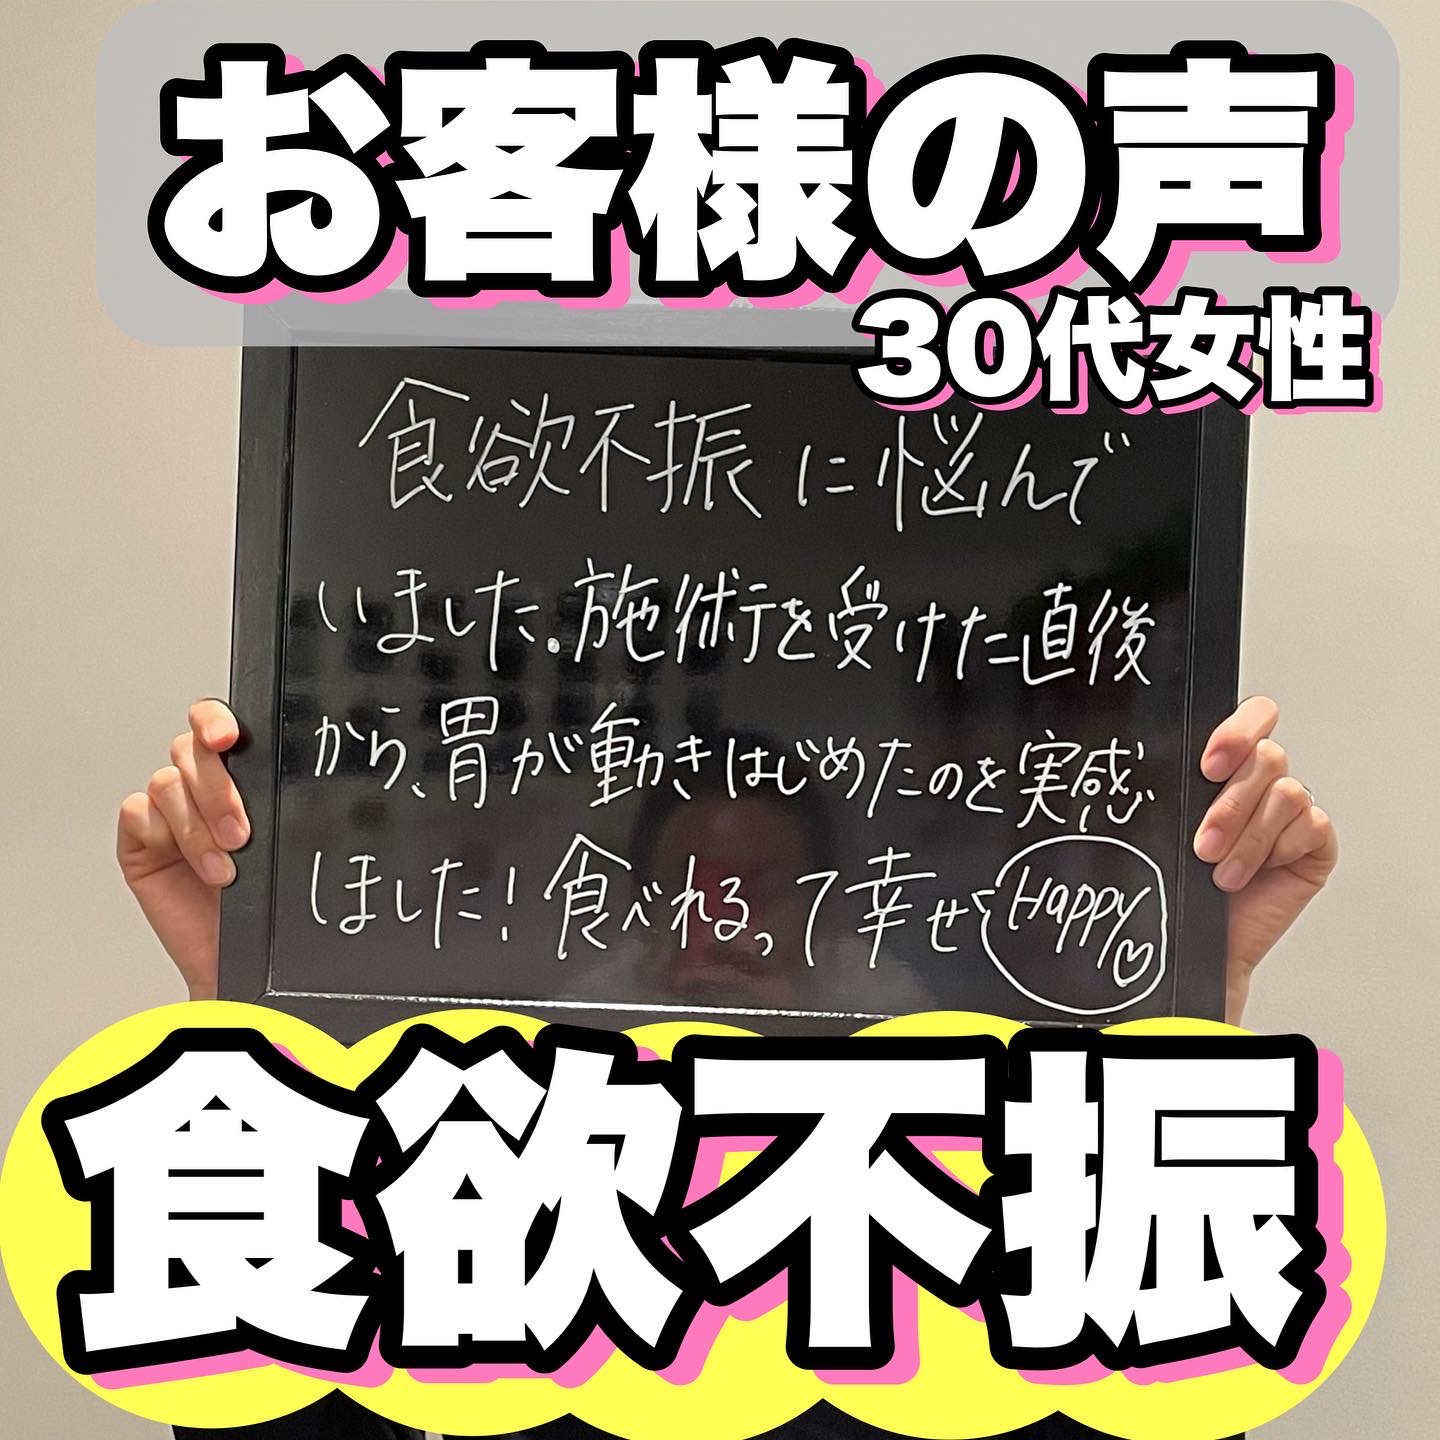 お客様の声
30代女性
食欲不振に悩んで
いました。施術を受けた直後
から、胃が動きはじめたのを実感
しました！食べれるって幸せ Happy♡
食欲不振